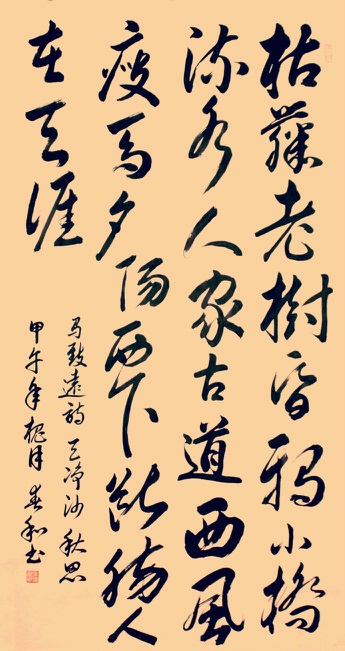 枯藤老樹昏鸦小橋
流水人家古道西風
瘦马夕陽西下断腸人
在天涯
马致遠詩天净沙秋思
甲午年槐月春和书